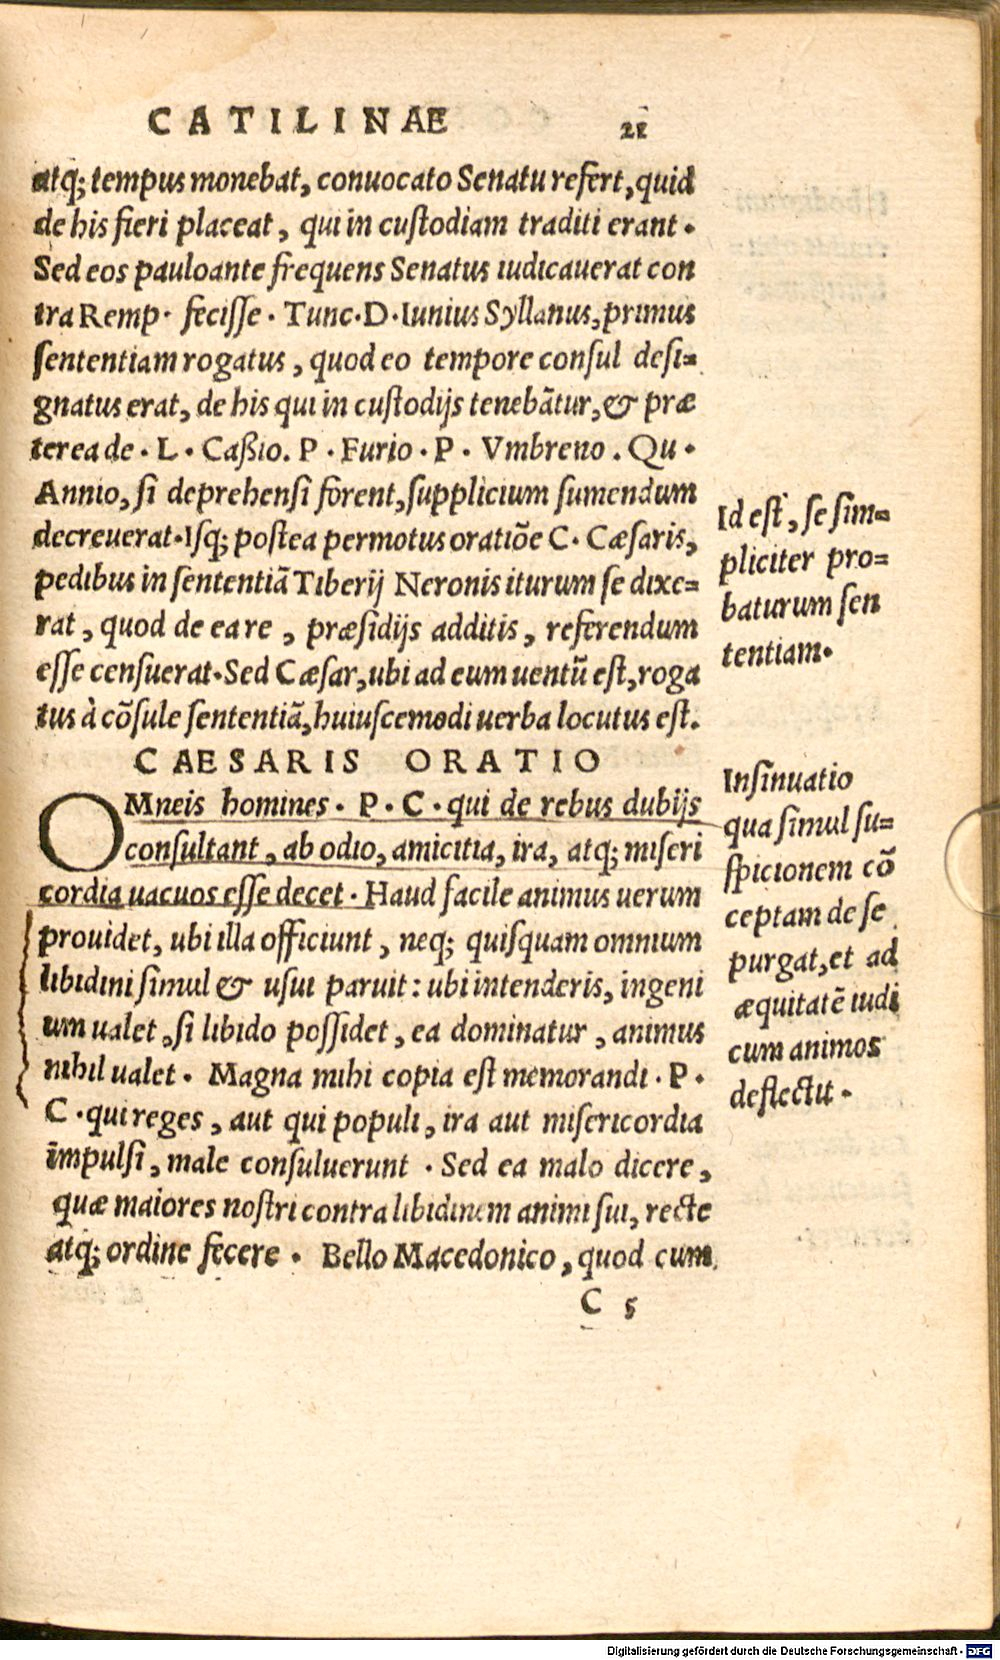 CATILINAE 21
atq; tempus monebat, conuocato Senatu refert, quid
de his fieri placeat, qui in custodiam traditi erant.
Sed eos pauloante frequens Senatus iudicauerat con
tra Remp. fecisse. Tunc. D. Iunius Syllanus, primus
sententiam rogatus, quod eo tempore consul desi=
gnatus erat, de his qui in custodijs tenebãtur, & præ
terea de. L. Caßio. P. Furio. P. Vmbreno. Qu.
Annio, si deprehensi forent, supplicium sumendum
decreuerat. Isq; postea permotus oratiõe C. Cæsaris,
pedibus in sententiã Tiberij Neronis iturum se dixe=
rat, quod de ea re, præsidijs additis, referendum
esse censuerat. Sed Cæsar, ubi ad eum uentũ est, roga
tus à cõsule sententiã, huiuscemodi uerba locutus est.
Id est, se sim=
pliciter pro=
baturum sen
tentiam.
CAESARIS ORATIO
OMneis homines. P. C. qui de rebus dubijs
consultant, ab odio, amicitia, ira, atq; miseri
cordia uacuos esse decet. Haud facile animus uerum
prouidet, ubi illa officiunt, neq; quisquam omnium
libidini simul & usui paruit: ubi intenderis, ingeni
um ualet, si libido possidet, ea dominatur, animus
nihil ualet. Magna mihi copia est memorandi. P.
C. qui reges, aut qui populi, ira aut misericordia
impulsi, male consuluerunt. Sed ea malo dicere,
quæ maiores nostri contra libidinem animi sui, recte
atq; ordine fecere. Bello Macedonico, quod cum
Insinuatio
qua simul su=
spicionem cõ
ceptam de se
purgat, et ad
æquitatẽ iudi
cum animos
deflectit.
C 5
Digitalisierung gefördert durch die Deutsche Forschungsgemeinschaft - DFG